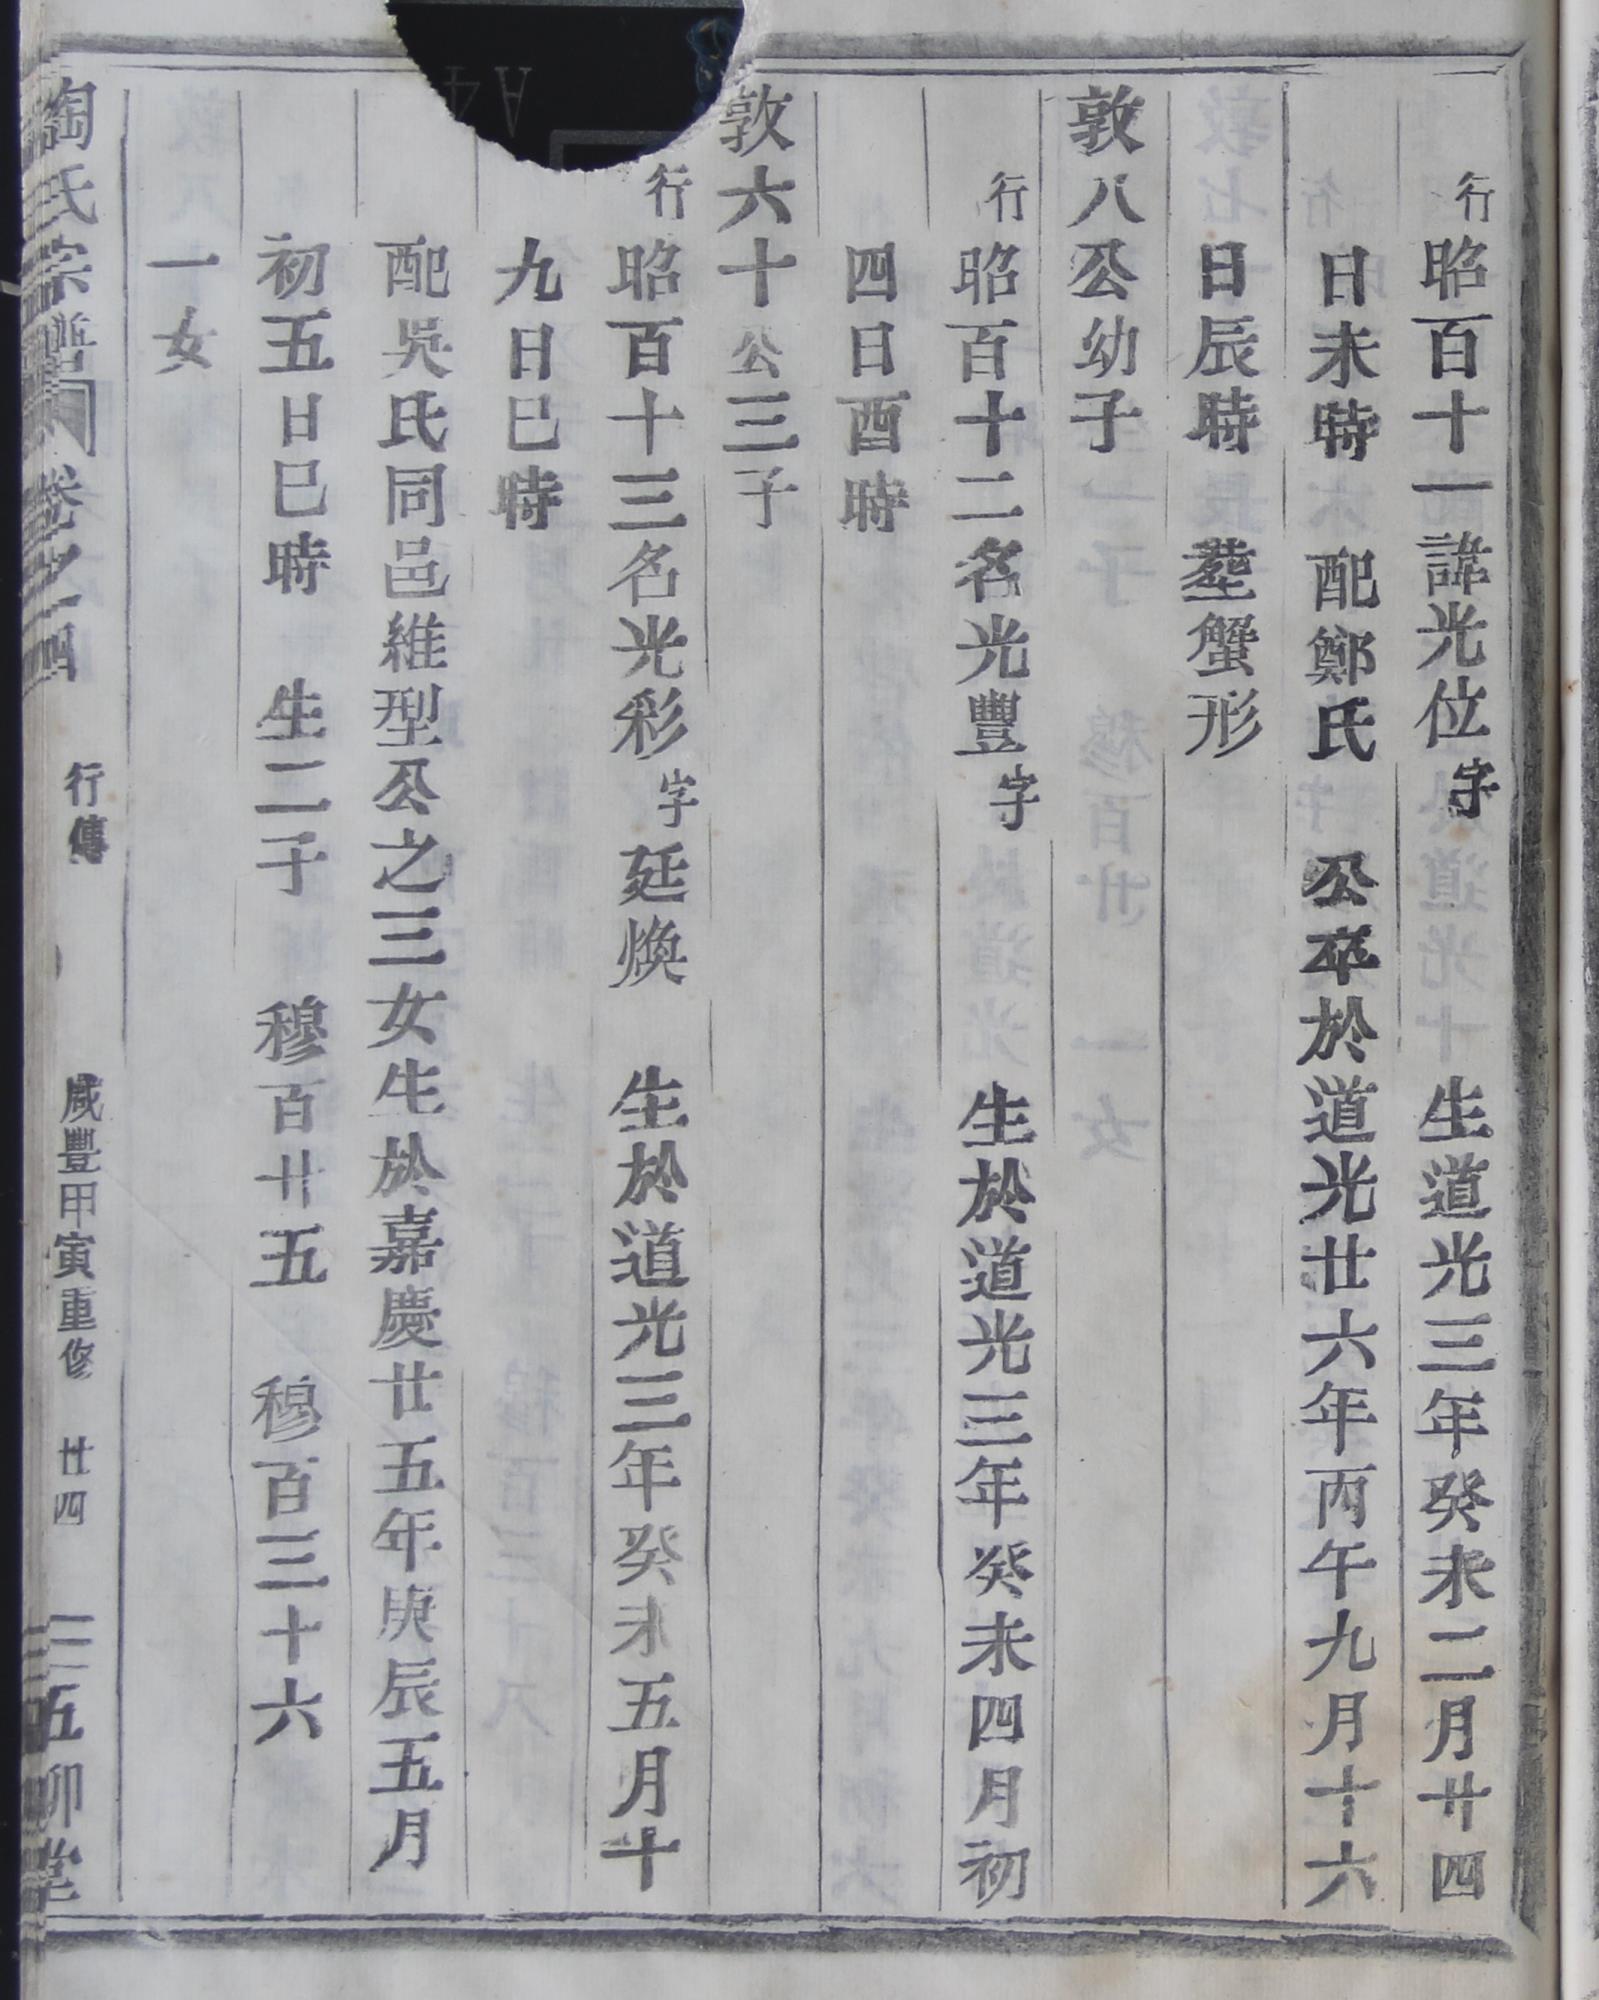 行昭百十一諱光位字 生道光三年癸未二月廿四
日未時 配鄭氏 公卒於道光廿六年丙午九月十六
日辰時 塟蟹形
敦八公幼子
行昭百十二名光豐字 生於道光三年癸未四月初
四日酉時
敦六十公三子
行昭百十三名光彩字延煥 生於道光三年癸未五月十
九日巳時
配吳氏同邑維型公之三女生於嘉慶廿五年庚辰五月
初五日巳時 生二子 穆百廿五 穆百三十六
一女
陶氏宗譜 卷之四 行傳 咸豐甲寅重修 廿四 五柳堂